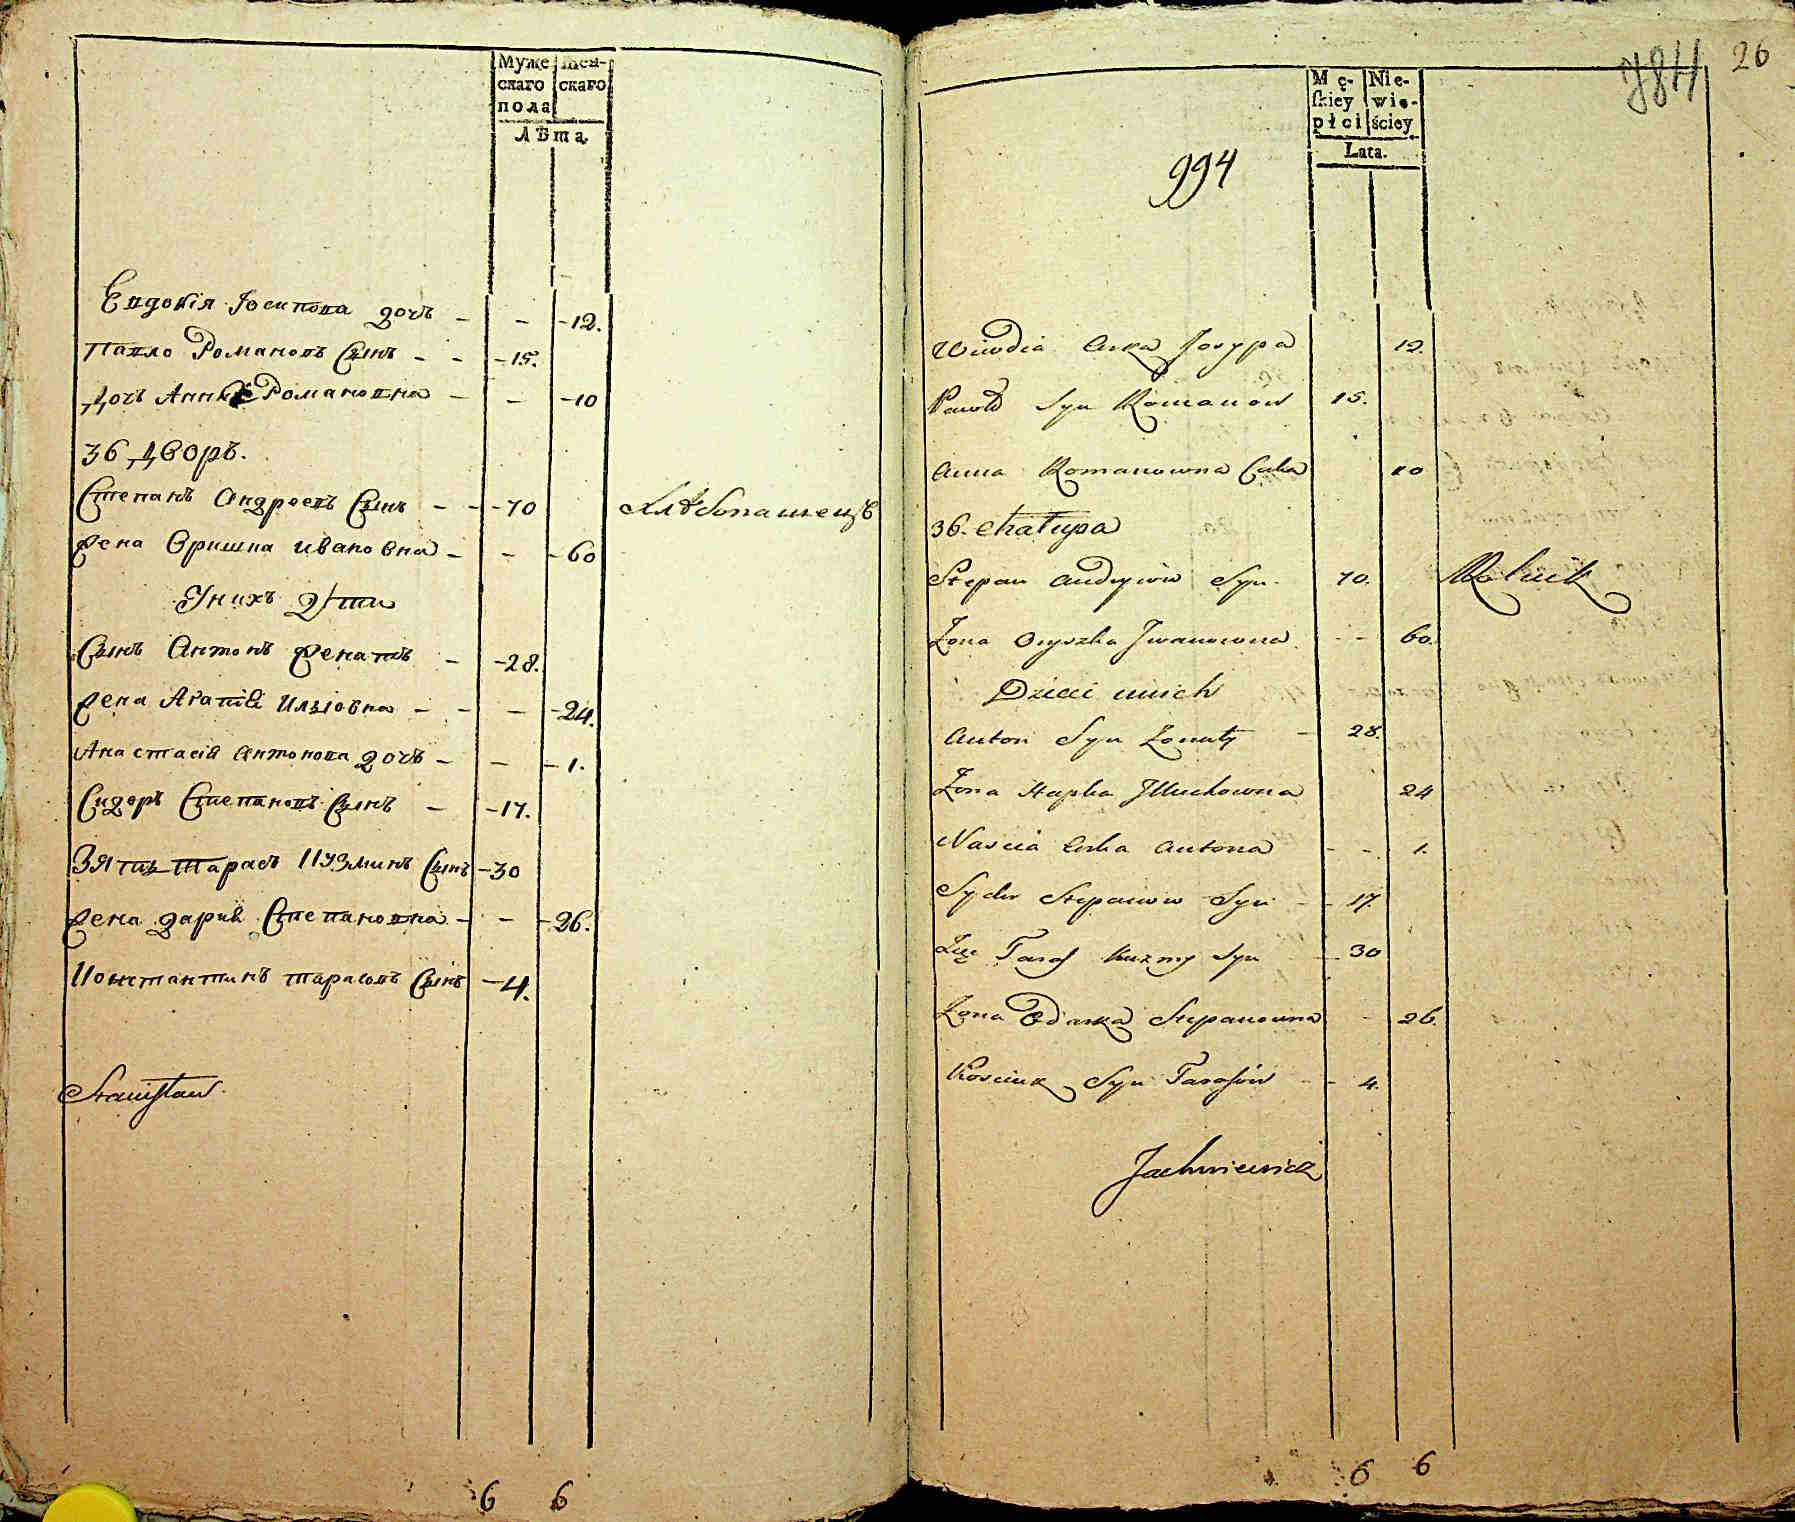 Муже Жен-
скаго скаго
пола
Лѣта
Евдокія Іосипова дочь - - -12.
Павло Романовъ Сынъ - - -15.
Дочь Анна Романовна - - -10
36 Дворъ.
Степанъ Андреевъ Сынъ - - -70 Хлѣбопашецъ
Жена Оришка Ивановна - - -60
У нихъ дѣти
Сынъ Антонъ Женатъ - -28.
Жена Агапія Ильковна - - - -24.
Анастасія Антонова дочь - - -1.
Сидоръ Степановъ Сынъ - -17.
Зять Тарасъ Кузминъ Сынъ -30
Жена Дария Степановна - - -26.
Константинъ Тарасовъ Сынъ -4.
Stanisław
6 6
26
784
Mę- Nie-
skiey wie-
płci ściey
Lata.
994
Wiwdia Curka Josypa 12.
Pawło Syn Romanow 15.
Anna Romanowna Curka 10
36. Chałupa
Stepan Andryiow Syn 70. Rolnik
Żona Oryszka Iwanowna - - 60.
Dzieci unich
Anton Syn Żonaty - 28.
Żona Hapka Illuchowna 24
Nascia Curka Antona - - 1.
Sydor Stepanow Syn - - 17.
Zięc Taras Kuzmy Syn - 30
Żona Odarka Stepanowna - 26.
Kosciuk Syn Tarasów - - 4.
Jachniewicz
6 6